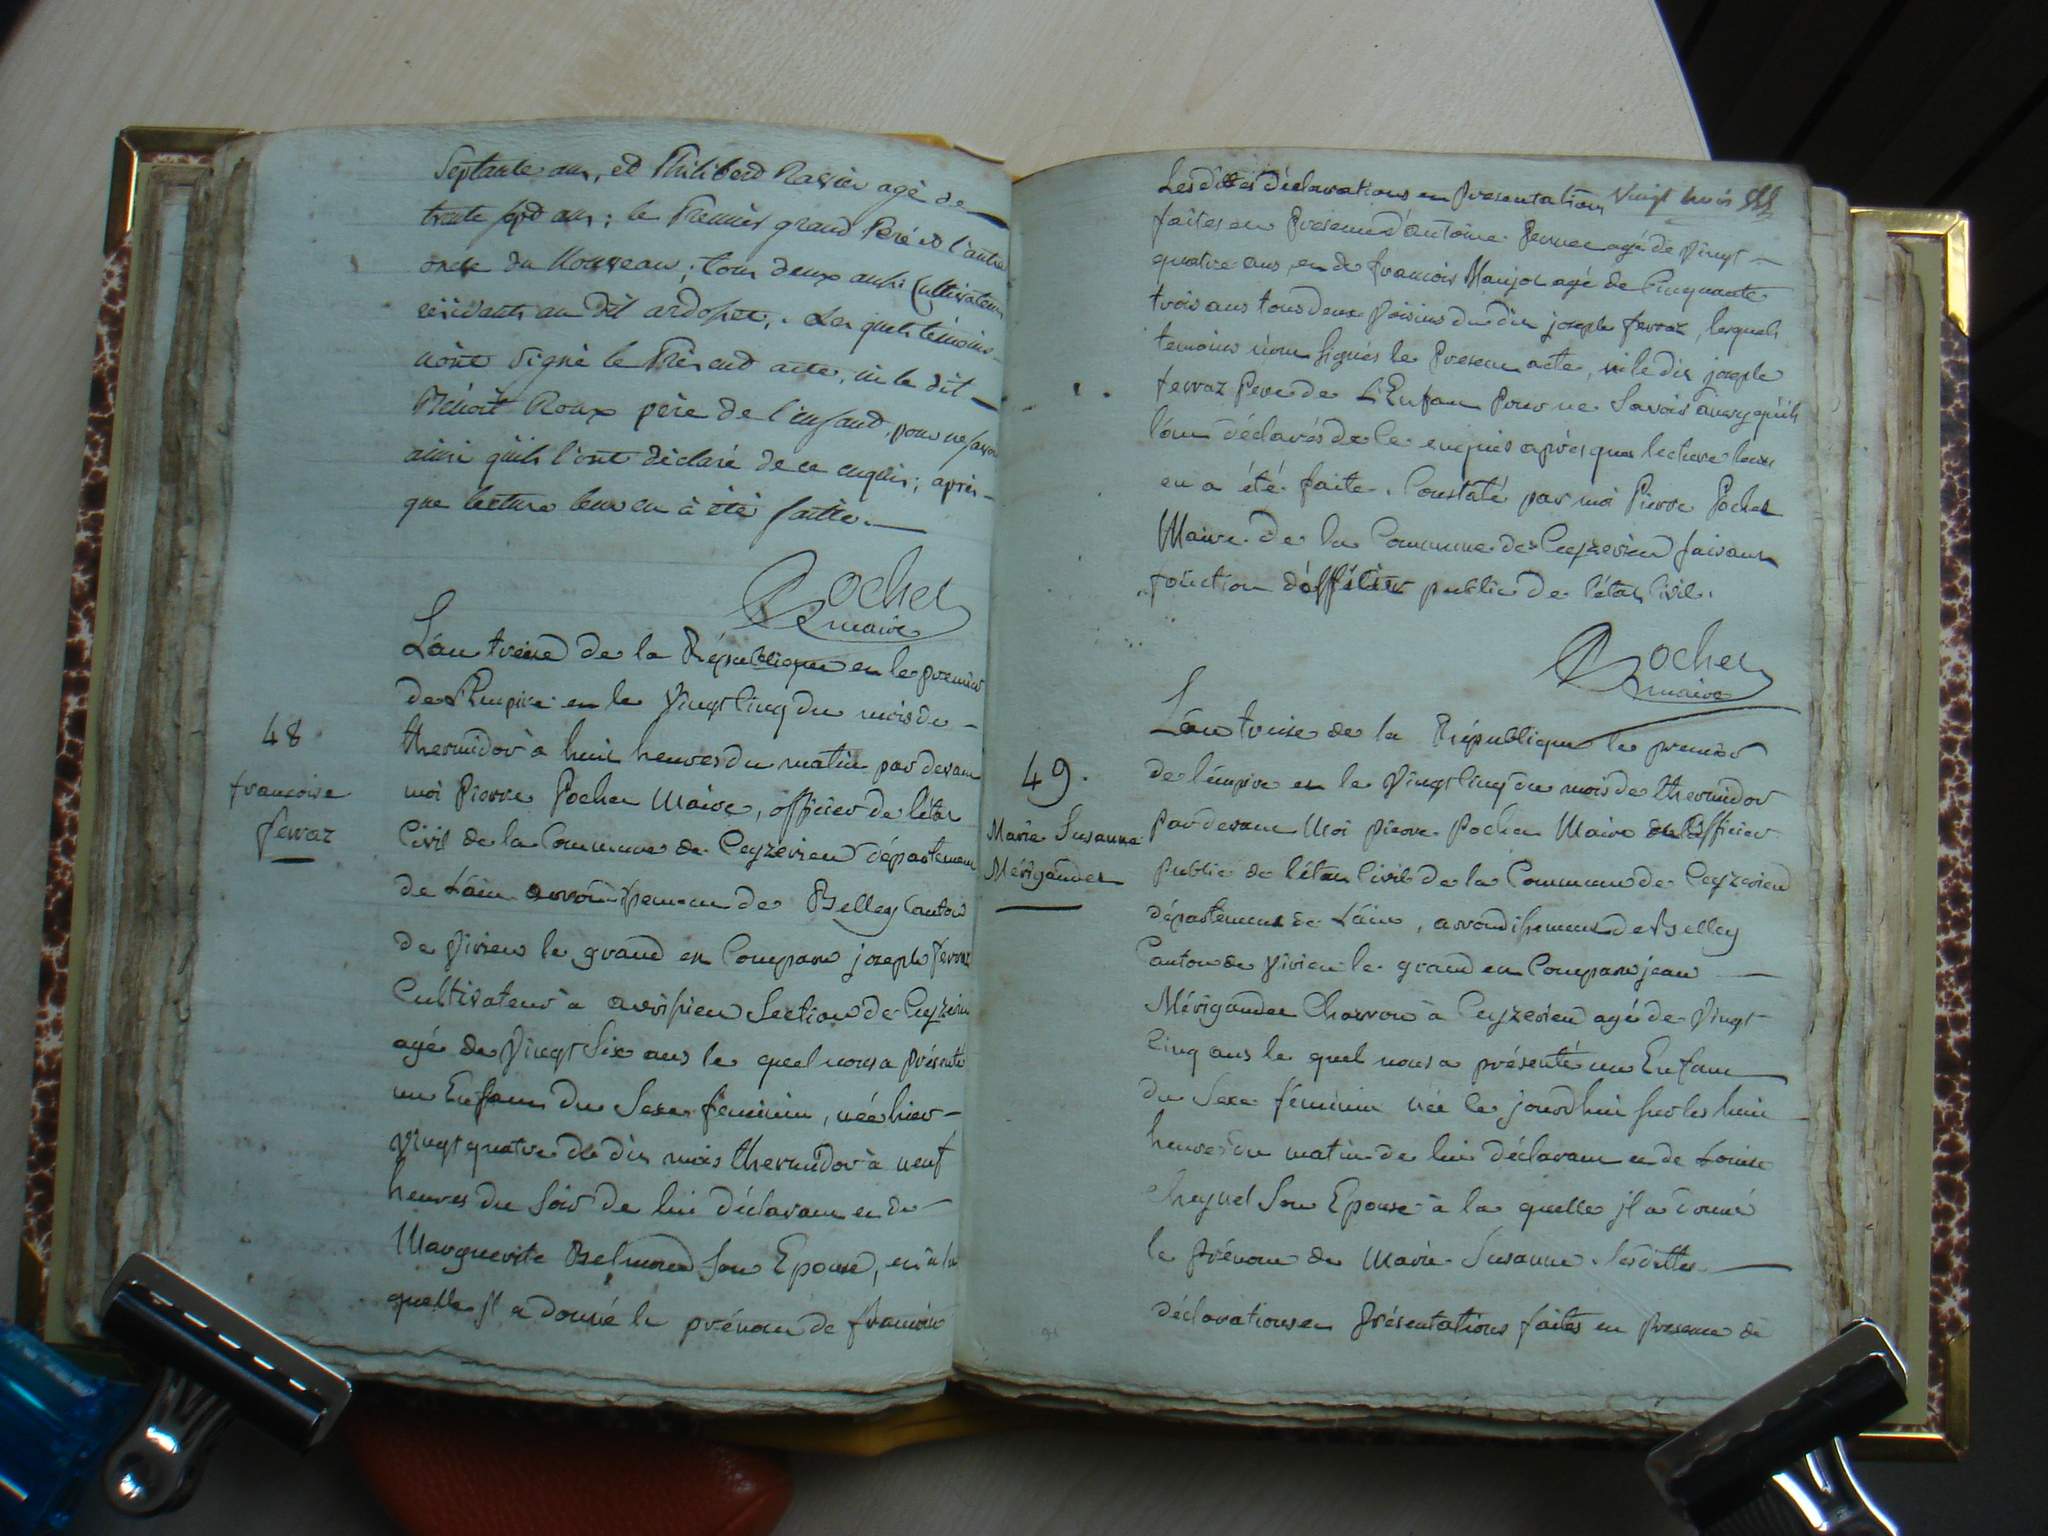 Septante ans, et Philibert Ravier agé de
trente sept ans; le Premier grand Peré et l'autre
oncle du Nouveau; tous deux aussi Cultivateurs
résidants au dit ardosset. Les quels témoins
n'ont signé le Présent acte, ni le dit
Bénoit Roux père de l'enfant, pour ne savoir
ainsi qu'ils l'ont déclaré de ce enquis; après
que lecture leur en à été faitte.
Pochet
maire
L'an treize de la République et le premier
de L'Empire et le Vingt Cinq du mois de
thermidor à huit heures du matin par devant
moi Pierre Pochet Maire, officier de l'état
Civil de la Commune de Ceyzerieu département
de Lain arrondissement de Belley Canton
de Virieu le grand est Comparu joseph ferraz
Cultivateur à avrissieu Section de Ceyzerieu
agé de Vingt Six ans le quel nous a présenté
un Enfant du Sexe féminin, née hier
Vingt quatre du dit mois thermidor à neuf
heures du Soir de lui déclarant et de
Marguerite Belmond Son Epouse, et à la
quelle jl a donné le prénom de francoise
48
francoise
ferraz
Les dittes déclarations et presentation Vingt huit
faites en Presence d'antoine Perret agé de Vingt
quatre ans, et de francois Manjot agé de Cinquante
trois ans tous deux Voisins du dit joseph ferraz, lesquels
temoins n'ont signés le Present acte, ni le dit joseph
ferraz Pere de L'Enfant Pour ne Savoir ainsy qu'ils
l'ont déclarés de le enquis après que lecture leur
en a été faite. Constaté par moi Pierre Pochet
Maire de la Commune de Ceyzerieu faisant
fonction d'officier public de l'état Civil.
Pochet
maire
L'an treise de la République le premier
de l'émpire et le Vingt Cinq du mois de thermidor
Pardevant Moi pierre Pochet Maire officier
Public de l'état Civil de la Commune de Ceyzerieu
département de Lain, arrondissement de Belley
Canton de Virieu le grand est Comparu jean
Mérigaudet Charron à Ceyzerieu agé de Vingt
Cinq ans le quel nous a présenté un Enfant
du Sexe féminin née ce jourdhui sur les huit
heures du matin de lui déclarant et de Louise
Son Epouse à la quelle jl a donné
le prénom de Marie Susanne. Les dittes
déclarations et présentations faites en presence de
49.
Marie Susanne
Mérigaudet